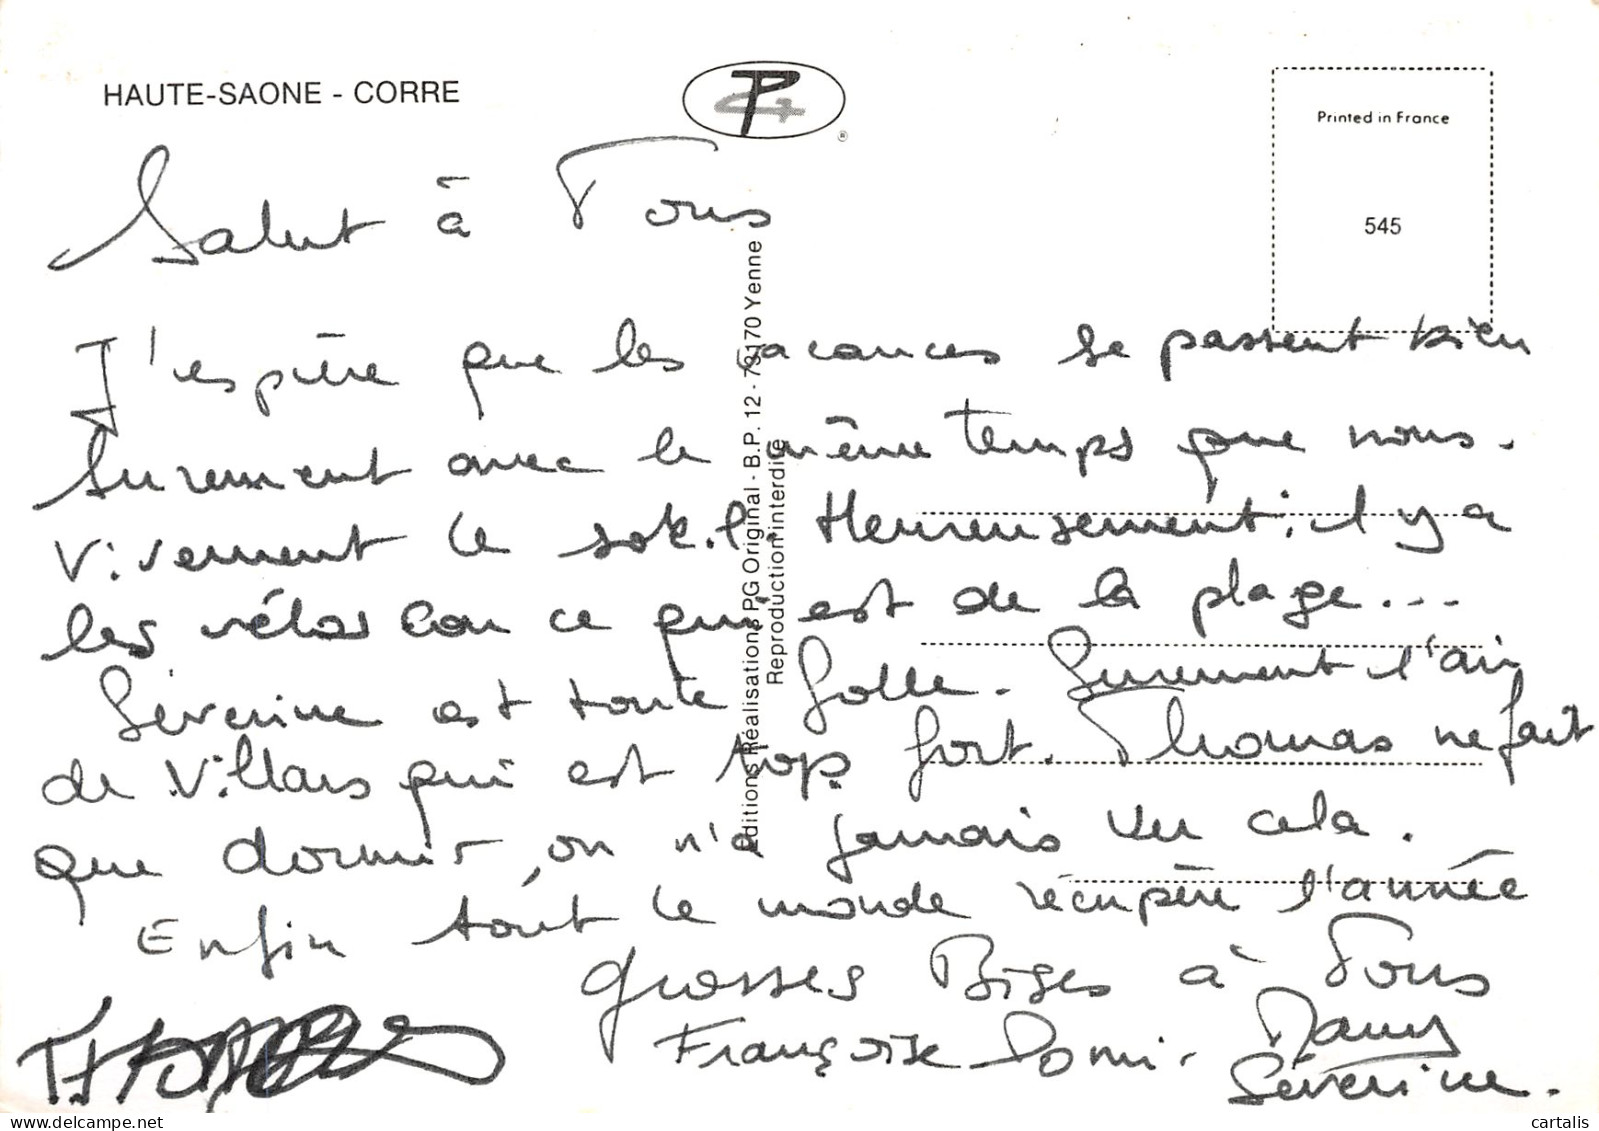 HAUTE-SAONE - CORRE
®
Printed in France
545
Salut à Tous
J'espère que les vacances se passent bien
Surement avec le même temps que nous.
Vivement le soleil. Heureusement, il y a
les vélos car ce qui est de la plage...
Séverine est toute folle. Surement l'air
de Villars qui est trop fort. Thomas ne fait
que dormir, on n'a jamais vu cela.
Enfin tout le monde récupère l'année
grosses Bises à Tous
Françoise Domi.
Séverine.
Editions Réalisations PG Original - B.P. 12 - 73170 Yenne
Reproduction interdite
cartalis